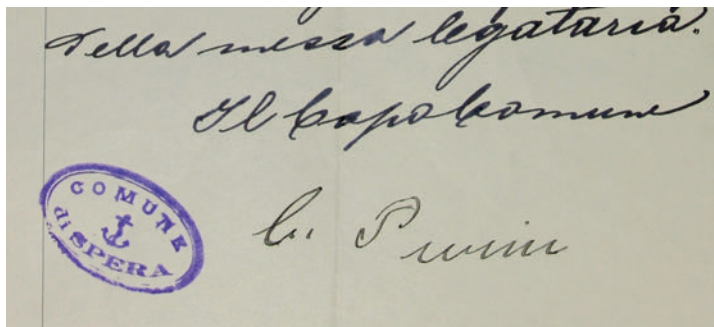 della messa legataria.
Il Capo Comune
COMUNE
di SPERA
C. Purin